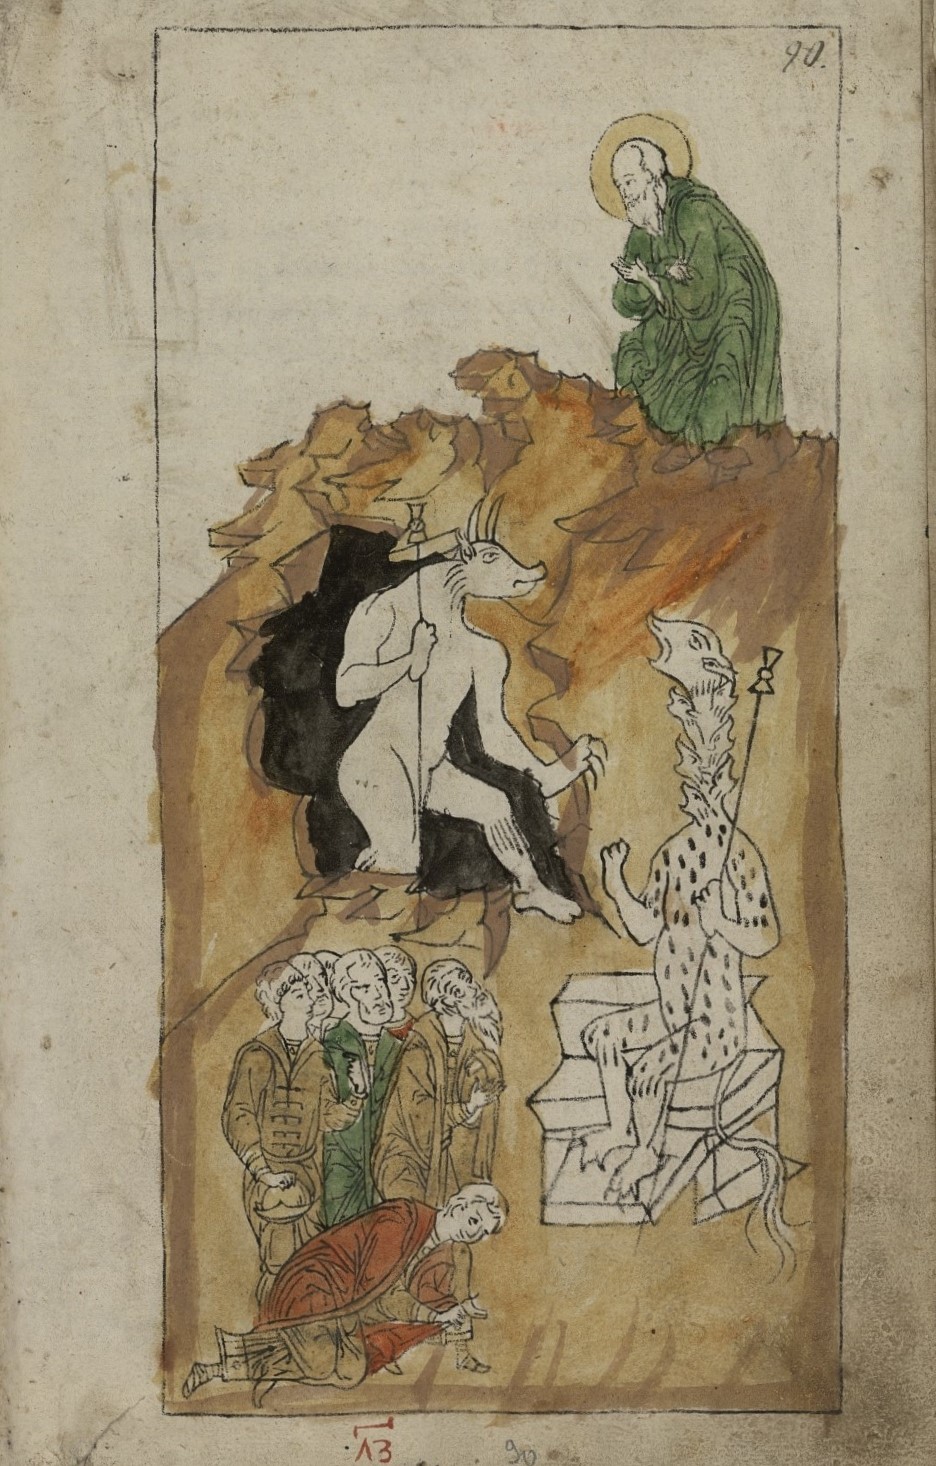 90.
ЛЗ
90